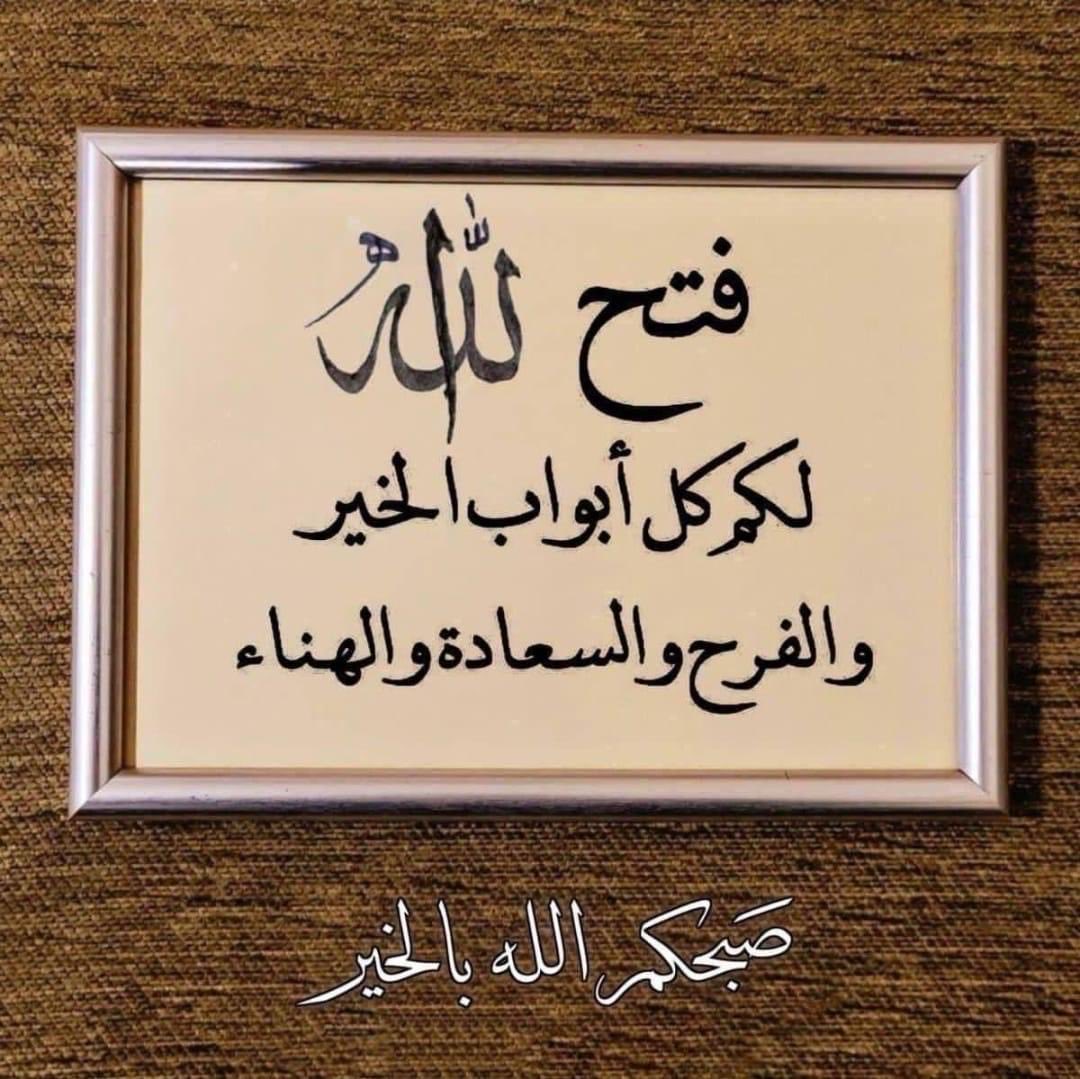 فتح الله
لكم كل أبواب الخير
والفرح والسعادة والهناء
صبحكم الله بالخير